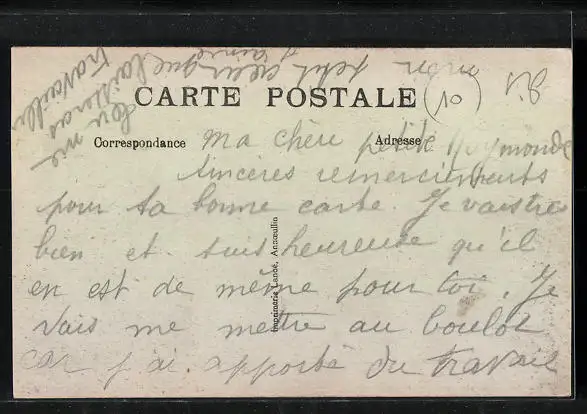 CARTE POSTALE
Correspondance
Adresse
ma chère petite Raymonde
sincères remerciements
pour ta bonne carte. Je vais très
bien et suis heureuse qu'il
en est de même pour toi. Je
vais me mettre au boulot
car j'ai apporté du travail
mon petit
que
travailler
Imprimerie Lancé, Annœullin